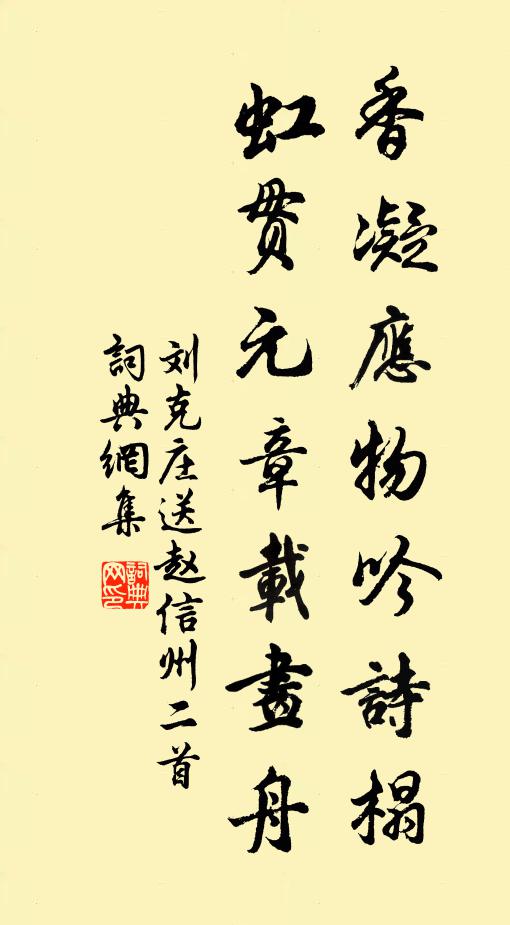 香凝應物吟詩榻
虹貫元章載畫舟
刘克庄送赵信州二首
詞典網集
詞典
网印